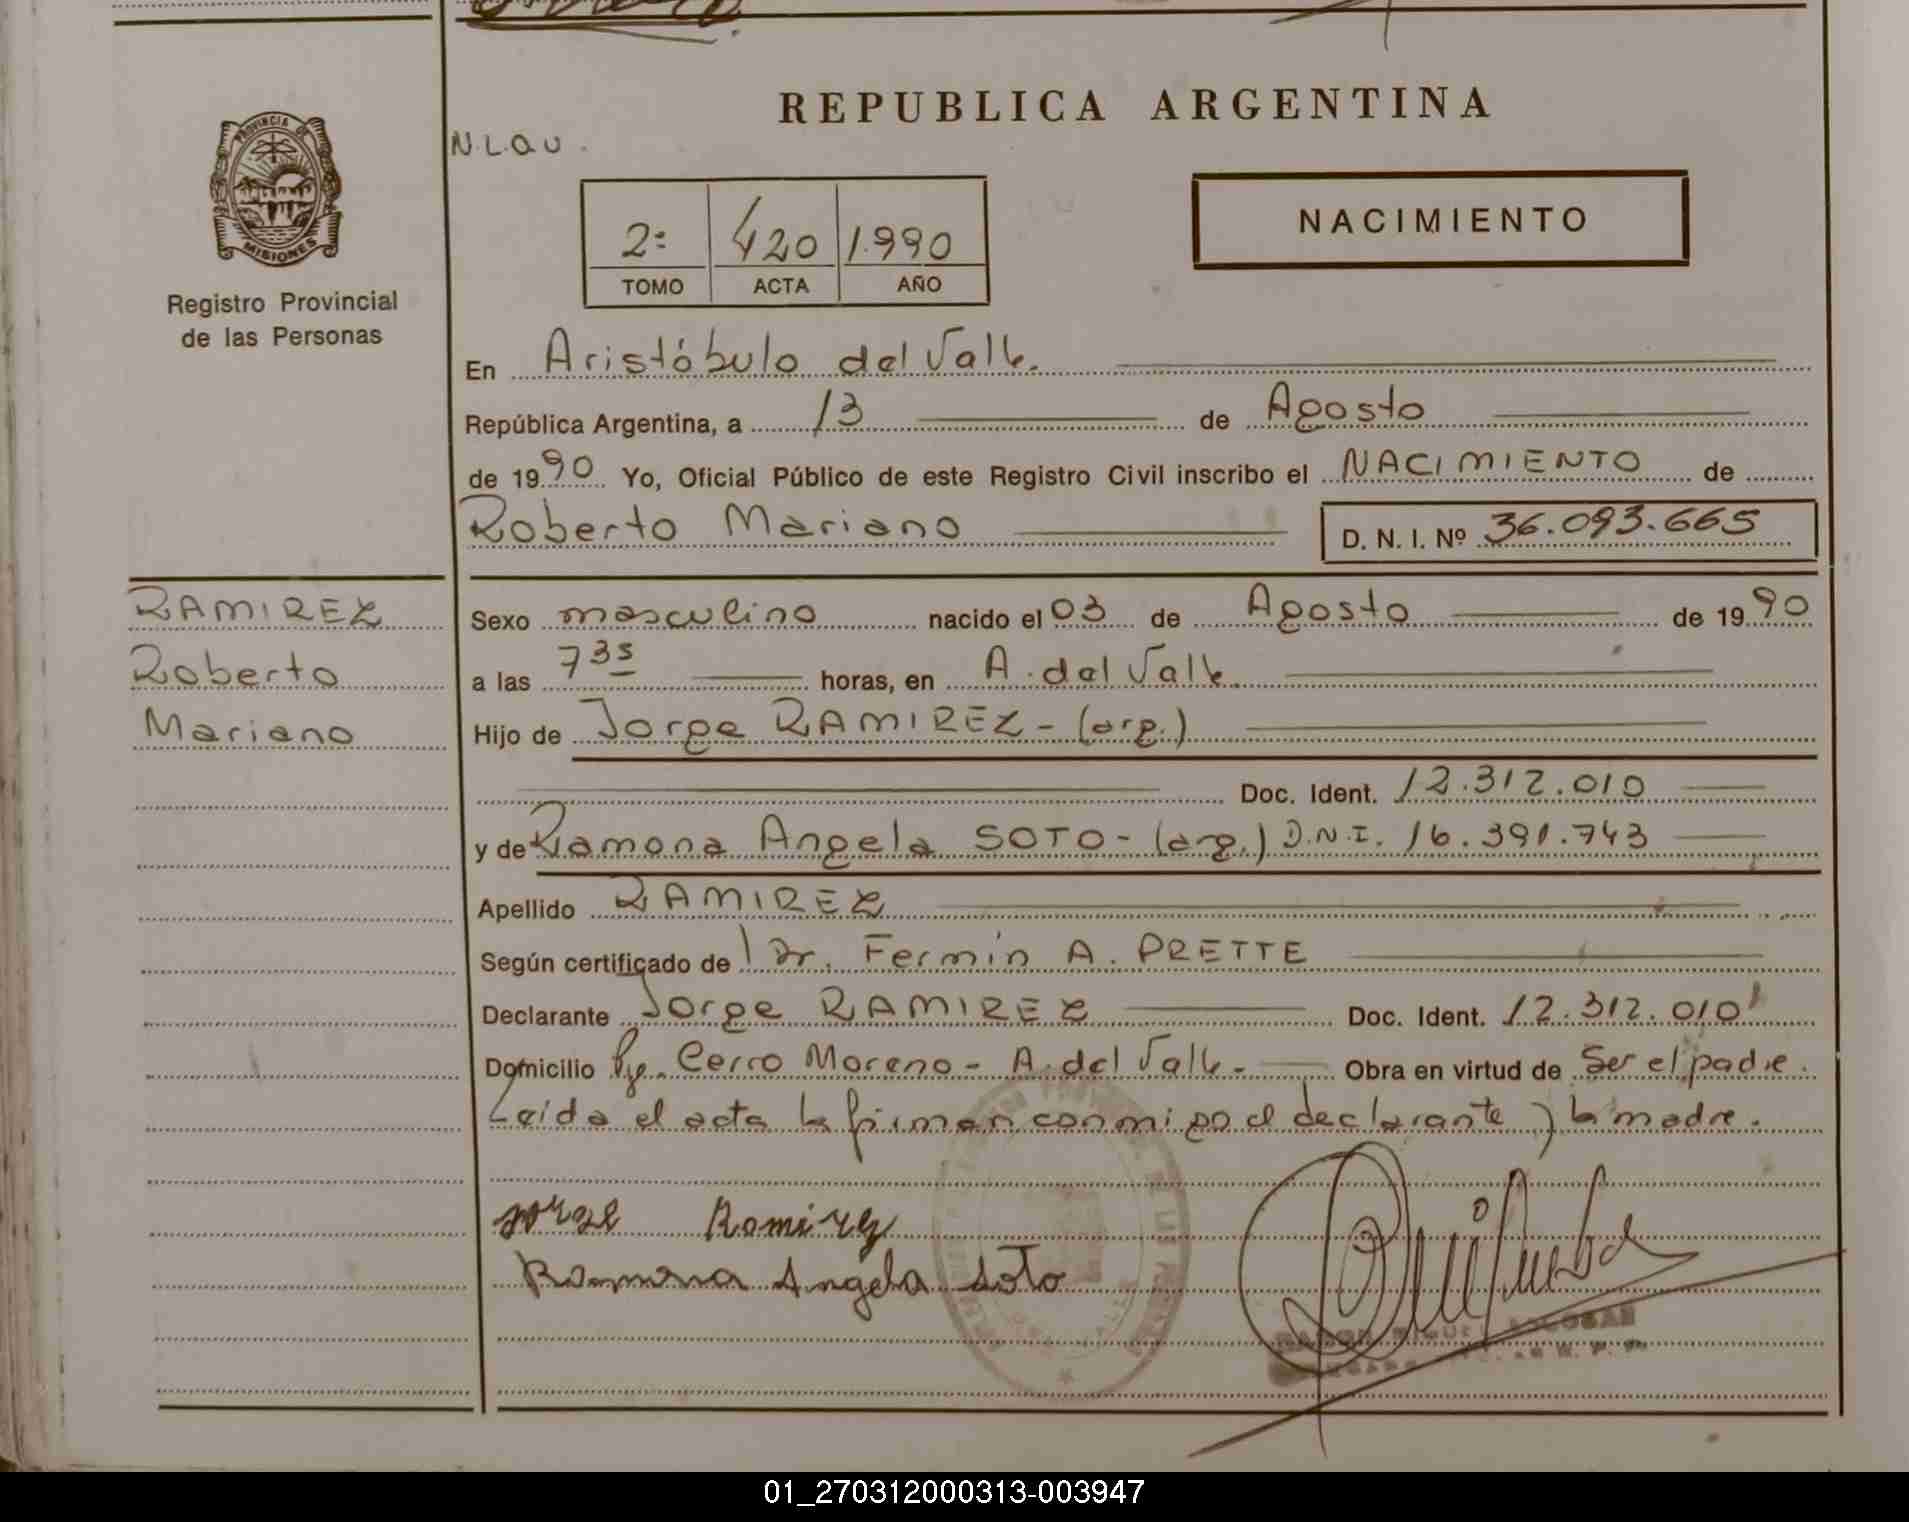 REPUBLICA ARGENTINA
N.L.Q.U.
PROVINCIA DE
MISIONES
Registro Provincial
de las Personas
2º 420 1.990
TOMO ACTA AÑO
NACIMIENTO
En Aristóbulo del Valle.
República Argentina, a 13 de Agosto
de 1990 Yo, Oficial Público de este Registro Civil inscribo el NACIMIENTO de
Roberto Mariano D. N. I. Nº 36.093.665
RAMIREZ
Roberto
Mariano
Sexo masculino nacido el 03 de Agosto de 1990
a las 7 35 horas, en A. del Valle.
Hijo de Jorge RAMIREZ - (arg.)
Doc. Ident. 12.312.010
y de Ramona Angela SOTO - (arg.) D.N.I. 16.391.743
Apellido RAMIREZ
Según certificado de Dr. Fermín A. PRETTE
Declarante Jorge RAMIREZ Doc. Ident. 12.312.010
Domicilio Pje. Cerro Moreno - A. del Valle - Obra en virtud de Ser el padre.
Leida el acta la firman conmigo el declarante y la madre.
Jorge Ramirez
Ramona Angela Soto
RAMON MIGUEL
01_270312000313-003947